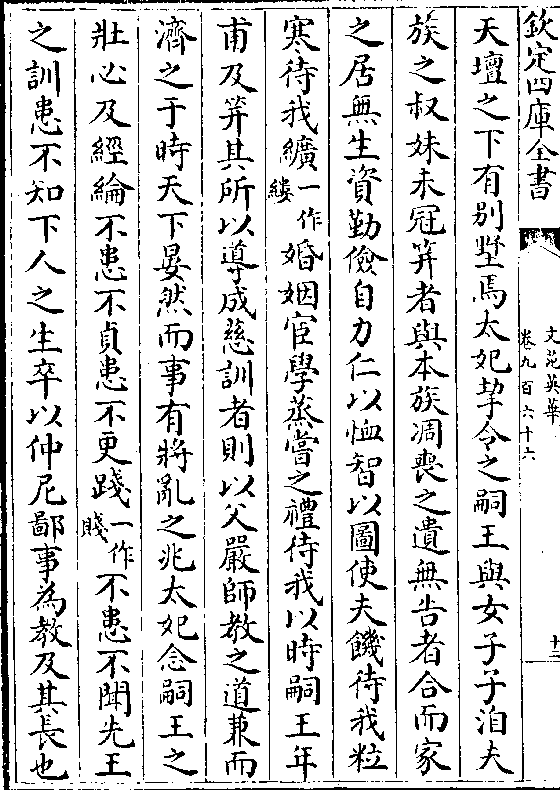 欽定四庫全書
文苑英華
卷九百六十六
十二
天壇之下有别墅焉太妃挈今之嗣王與女子子洎夫
族之叔妹未冠笄者與本族凋喪之遺無告者合而家
之居無生資勤儉自力仁以恤智以圖使夫饑待我粒
寒待我纊一作縷婚姻宦學蒸嘗之禮待我以時嗣王年
甫及笄其所以導成慈訓者則以父嚴師教之道兼而
濟之于時天下晏然而事有將亂之兆太妃念嗣王之
壯必及經綸不患不貞患不更踐一作賤不患不聞先王
之訓患不知下人之生卒以仲尼鄙事為教及其長也